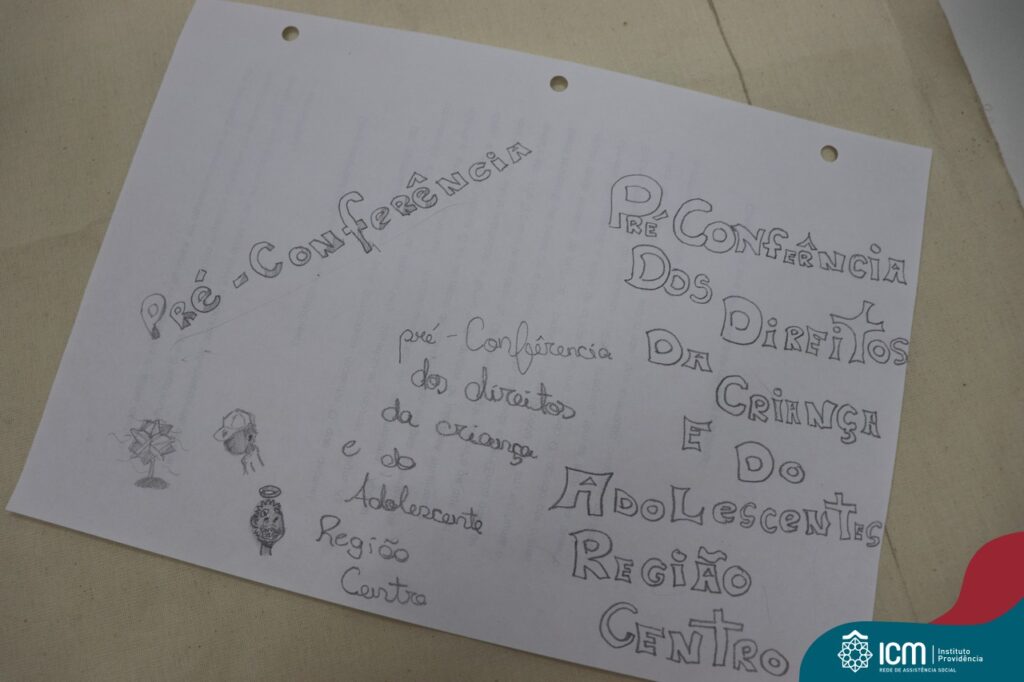 Pré-Conferência
pré-Confêrencia
dos direitos
da criança
e do
Adolescente
Região
Centro
Pré Conferência
Dos Direitos
Da Criança
E Do
Adolescentes
Região
Centro
ICM Instituto Providência
REDE DE ASSISTÊNCIA SOCIAL